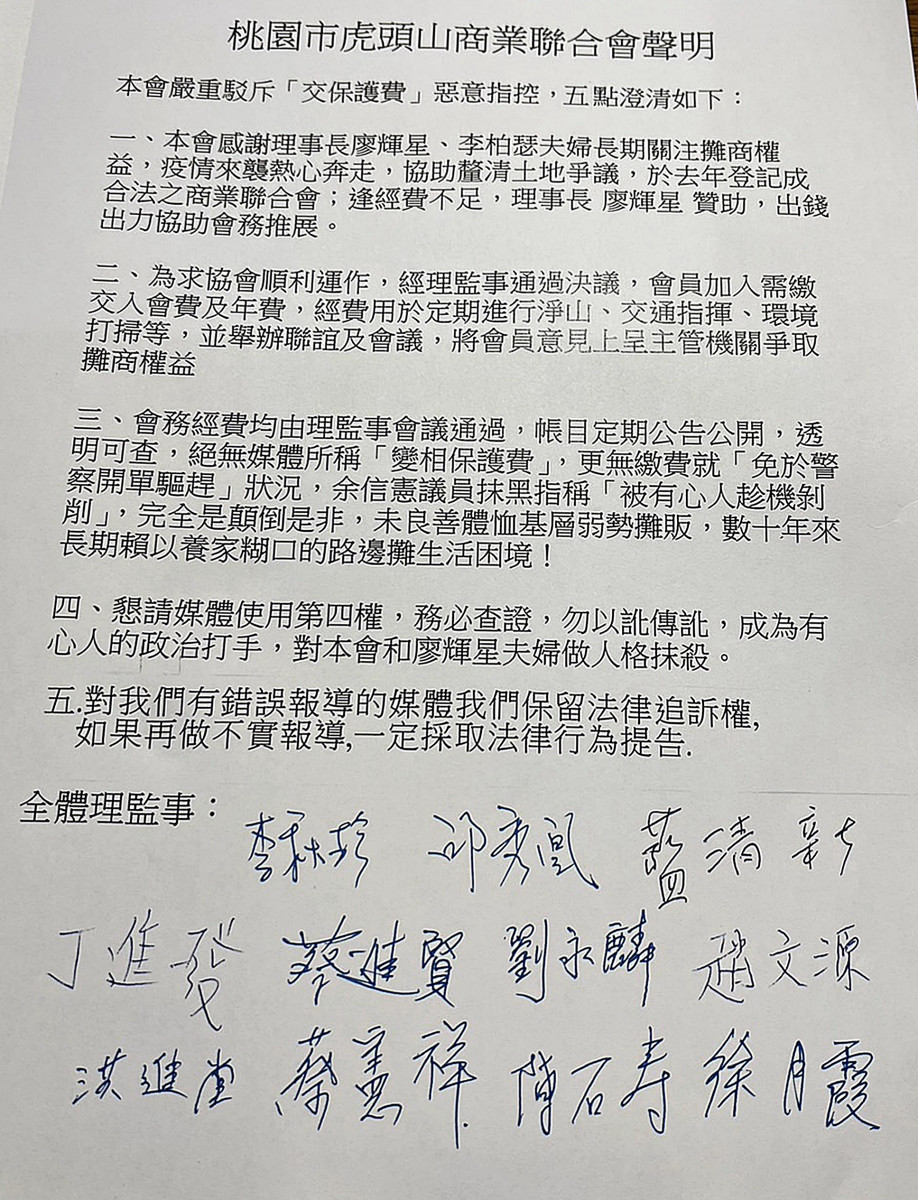 桃園市虎頭山商業聯合會聲明
本會嚴重駁斥「交保護費」惡意指控，五點澄清如下：
一、本會感謝理事長廖輝星、李柏瑟夫婦長期關注攤商權
益，疫情來襲熱心奔走，協助釐清土地爭議，於去年登記成
合法之商業聯合會；逢經費不足，理事長 廖輝星 贊助，出錢
出力協助會務推展。
二、為求協會順利運作，經理監事通過決議，會員加入需繳
交入會費及年費，經費用於定期進行淨山、交通指揮、環境
打掃等，並舉辦聯誼及會議，將會員意見上呈主管機關爭取
攤商權益
三、會務經費均由理監事會議通過，帳目定期公告公開，透
明可查，絕無媒體所稱「變相保護費」，更無繳費就「免於警
察開單驅趕」狀況，余信憲議員抹黑指稱「被有心人趁機剝
削」，完全是顛倒是非，未良善體恤基層弱勢攤販，數十年來
長期賴以養家糊口的路邊攤生活困境！
四、懇請媒體使用第四權，務必查證，勿以訛傳訛，成為有
心人的政治打手，對本會和廖輝星夫婦做人格抹殺。
五.對我們有錯誤報導的媒體我們保留法律追訴權,
如果再做不實報導,一定採取法律行為提告.
全體理監事：
李秋珍 邱秀凰 藍清新
丁進發 蔡進賢 劉永麟 趙文源
洪進堂 蔡憲祥 陳石寿 徐月霞